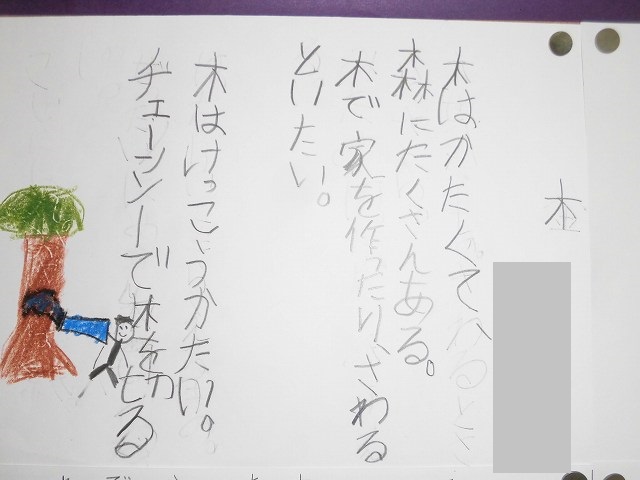 木
木はかたくて
森にたくさんある。
木で家を作ったり、さわる
といたい。
木はけっこうかたい。
チェーンソーで木を切る